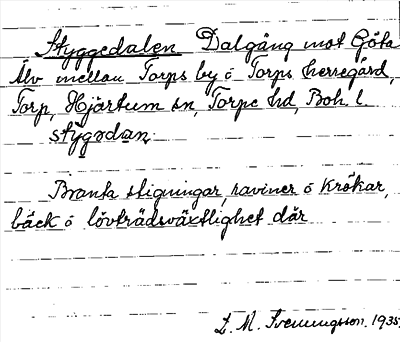 Styggedalen Dalgång mot Göta
Älv mellan Torps by o Torps herregård,
Torp, Hjärtum sn, Torpe hd, Boh. l.
stỳgədan.
Branta stigningar, raviner o krökar,
bäck o lövträdsväxtlighet där
L. M. Svenungsson. 1935.